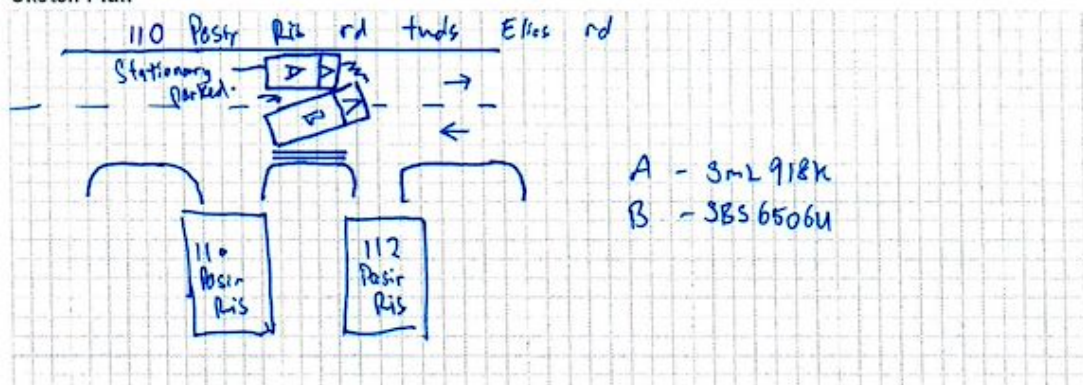 110 Pasir Ris rd twds Elias rd
Stationary
parked.
A - SmL 918K
B - SBS 6506U
110
Pasir
Ris
112
Pasir
Ris